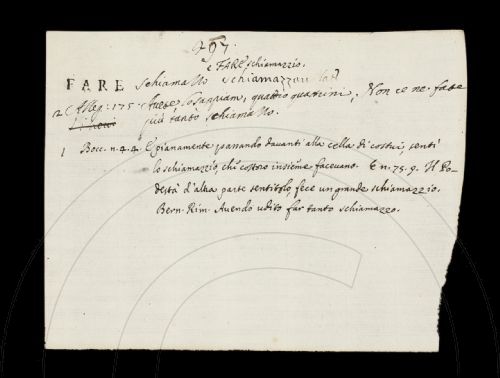 297.
e FARE schiamazzio.
FARE schiamazzo schiamazzare lat.
2 Alleg. 175 Avete, lo sappiam, quattro quattrini, Non ce ne fate
più tanto schiamazzo.
1 Bocc. n. 4. 4. E pianamente passando davanti alla cella di costui, sentì
lo schiamazzio, che costoro insieme facevano. E n. 75. 9. Il Po-
destà d'altra parte sentitolo, fece un grande schiamazzio.
Bern. Rim. Avendo udito far tanto schiamazzo.